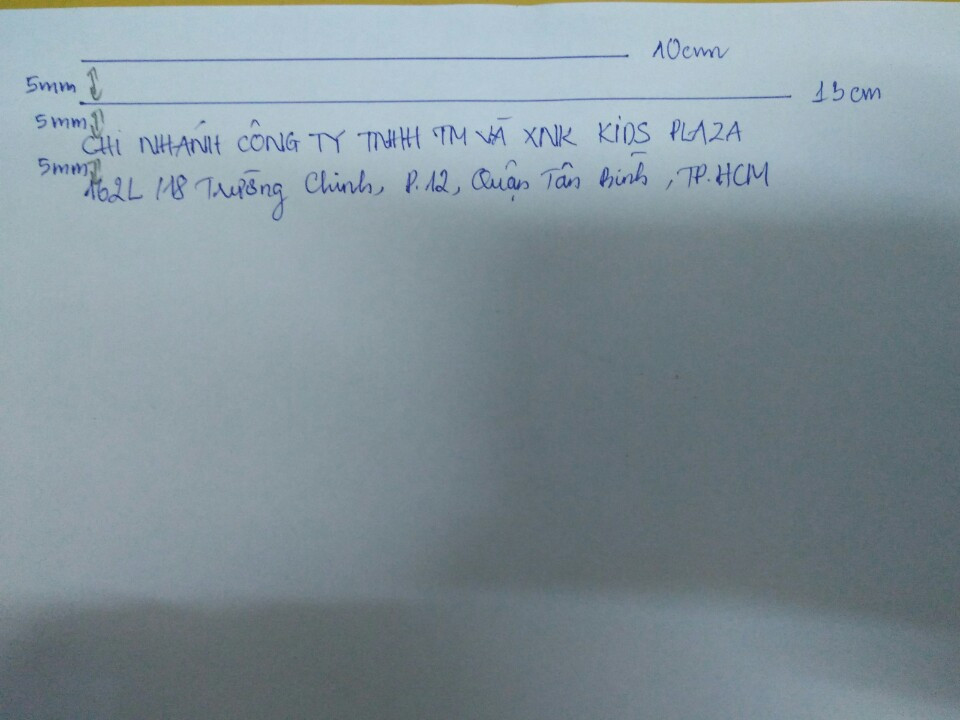 10cm
5mm
13cm
5mm
CHI NHÁNH CÔNG TY TNHH TM VÀ XNK KIDS PLAZA
5mm
162L /18 Trường Chinh, P.12, Quận Tân Bình, TP.HCM